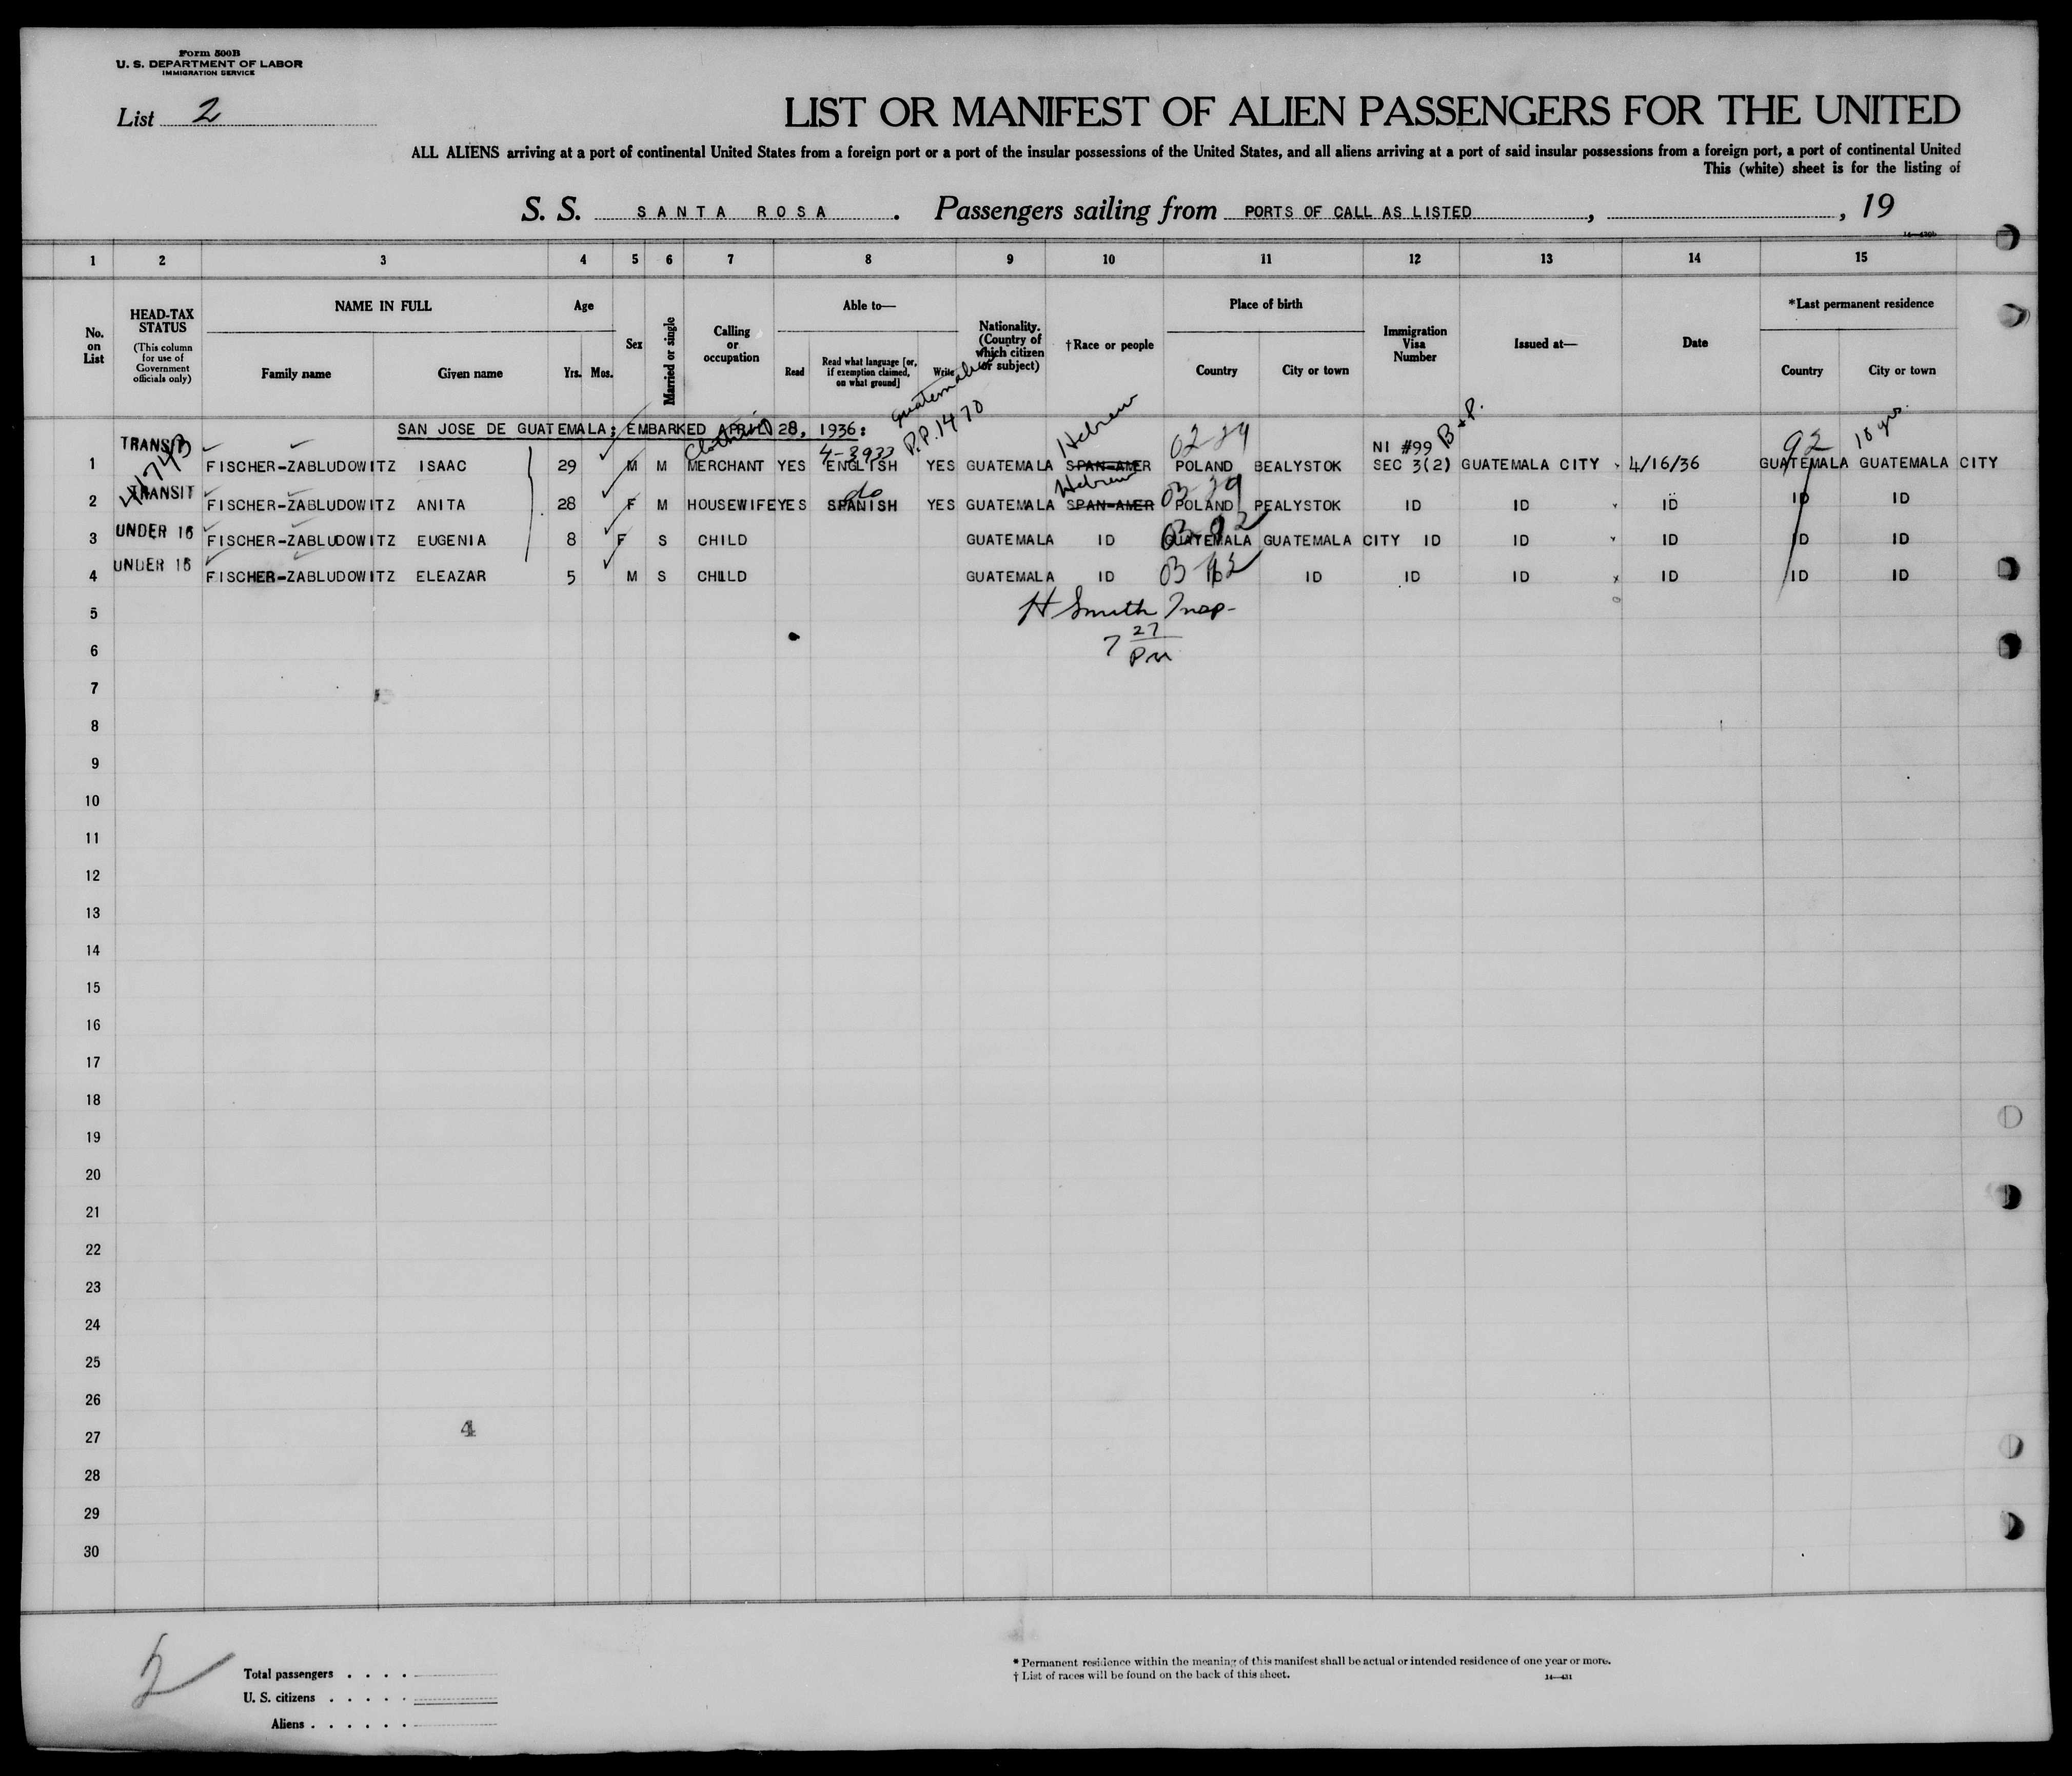 Form 500B
U. S. DEPARTMENT OF LABOR
IMMIGRATION SERVICE
List 2
LIST OR MANIFEST OF ALIEN PASSENGERS FOR THE UNITED
ALL ALIENS arriving at a port of continental United States from a foreign port or a port of the insular possessions of the United States, and all aliens arriving at a port of said insular possessions from a foreign port, a port of continental United
This (white) sheet is for the listing of
S. S. SANTA ROSA . Passengers sailing from PORTS OF CALL AS LISTED , , 19
1 2 3 4 5 6 7 8 9 10 11 12 13 14 15
No. on List
HEAD-TAX STATUS
(This column for use of Government officials only)
NAME IN FULL
Family name Given name
Age
Yrs. Mos.
Sex
Married or single
Calling or occupation
Able to—
Read
Read what language [or, if exemption claimed, on what ground]
Write
Nationality. (Country of which citizen or subject)
†Race or people
Place of birth
Country City or town
Immigration Visa Number
Issued at—
Date
*Last permanent residence
Country City or town
Guatemalan
P.P. 1470
SAN JOSE DE GUATEMALA; EMBARKED APRIL 28, 1936:
41743
Clothing
4-3933
Hebrew
02-29
B+P.
92
10 yrs.
1 TRANSIT FISCHER-ZABLUDOWITZ ISAAC 29 M M MERCHANT YES ENGLISH YES GUATEMALA SPAN-AMER POLAND BEALYSTOK NI #99 SEC 3(2) GUATEMALA CITY 4/16/36 GUATEMALA GUATEMALA CITY
do
Hebrew
2 TRANSIT FISCHER-ZABLUDOWITZ ANITA 28 F M HOUSEWIFE YES SPANISH YES GUATEMALA SPAN-AMER POLAND PEALYSTOK ID ID ID ID ID
3 UNDER 16 FISCHER-ZABLUDOWITZ EUGENIA 8 F S CHILD GUATEMALA ID GUATEMALA GUATEMALA CITY ID ID ID ID ID
4 UNDER 16 FISCHER-ZABLUDOWITZ ELEAZAR 5 M S CHILD GUATEMALA ID ID ID ID ID ID ID
5
H Smith Insp-
6
7 27
PM
7
8
9
10
11
12
13
14
15
16
17
18
19
20
21
22
23
24
25
26
27
4
28
29
30
2
Total passengers . . . .
U. S. citizens . . . . .
Aliens . . . . . .
* Permanent residence within the meaning of this manifest shall be actual or intended residence of one year or more.
† List of races will be found on the back of this sheet.
14—431